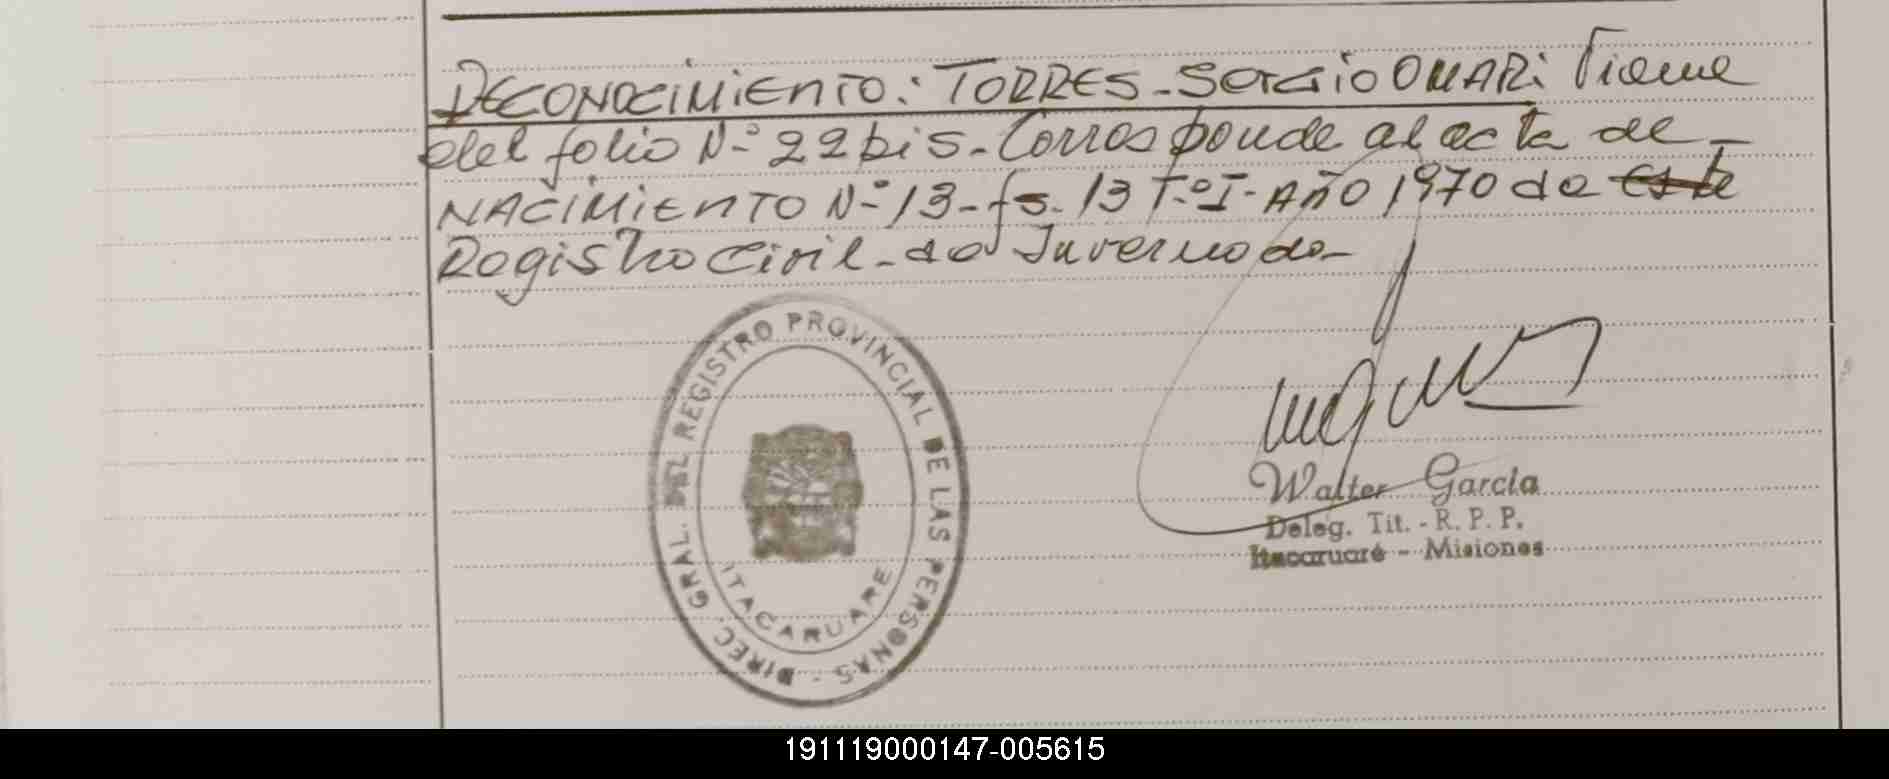 RECONOCIMIENTO: TORRES - Sergio OMAR: Viene
del folio N° 22 bis - Corresponde al acta de -
NACIMIENTO N° 13 - fs. 13 T°. I - AÑO 1970 de este
Registro Civil - de Invernada -
DIREC. GRAL. DEL REGISTRO PROVINCIAL DE LAS PERSONAS -
ITACARUARE
Walter García
Deleg. Tit. - R. P. P.
Itacaruaré - Misiones
191119000147-005615